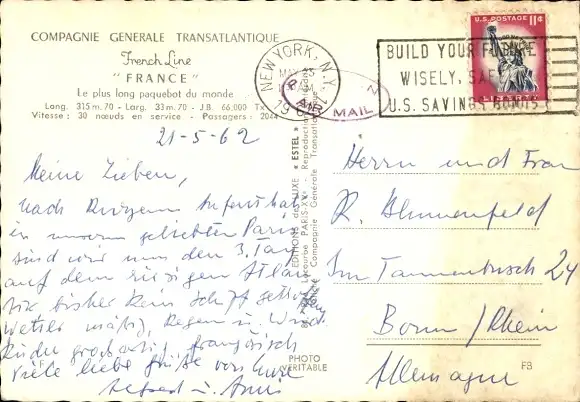 COMPAGNIE GENERALE TRANSATLANTIQUE
French Line
"FRANCE"
Le plus long paquebot du monde
Long. 315 m. 70 - Larg. 33 m. 70 - J.B. 66.000 Tx
Vitesse: 30 nœuds en service - Passagers: 2044
21-5-62
Meine Lieben,
nach kurzem Aufenthalt
in unserem geliebten Paris
sind wir nun den 3. Tag
auf dem riesigen Atlan
tik bisher kein Schiff
Wetter mäßig, Regen u. Wind
Küche großartig, französisch
Viele liebe Grüße von Eure
u.
EDITIONS de LUXE "ESTEL"
Lacourbe PARIS-XV
Reproduction
Compagnie Générale Transatlantique
PHOTO
VERITABLE
NEW YORK, N.Y.
MAY
19
AIR MAIL
U.S. POSTAGE 11¢
LIBERTY
BUILD YOUR FUTURE
WISELY, SAFELY
U.S. SAVINGS BONDS
Herrn und Frau
R. Blumenfeld
Im Tannenbusch 24
Bonn/Rhein
Allemagne
FB